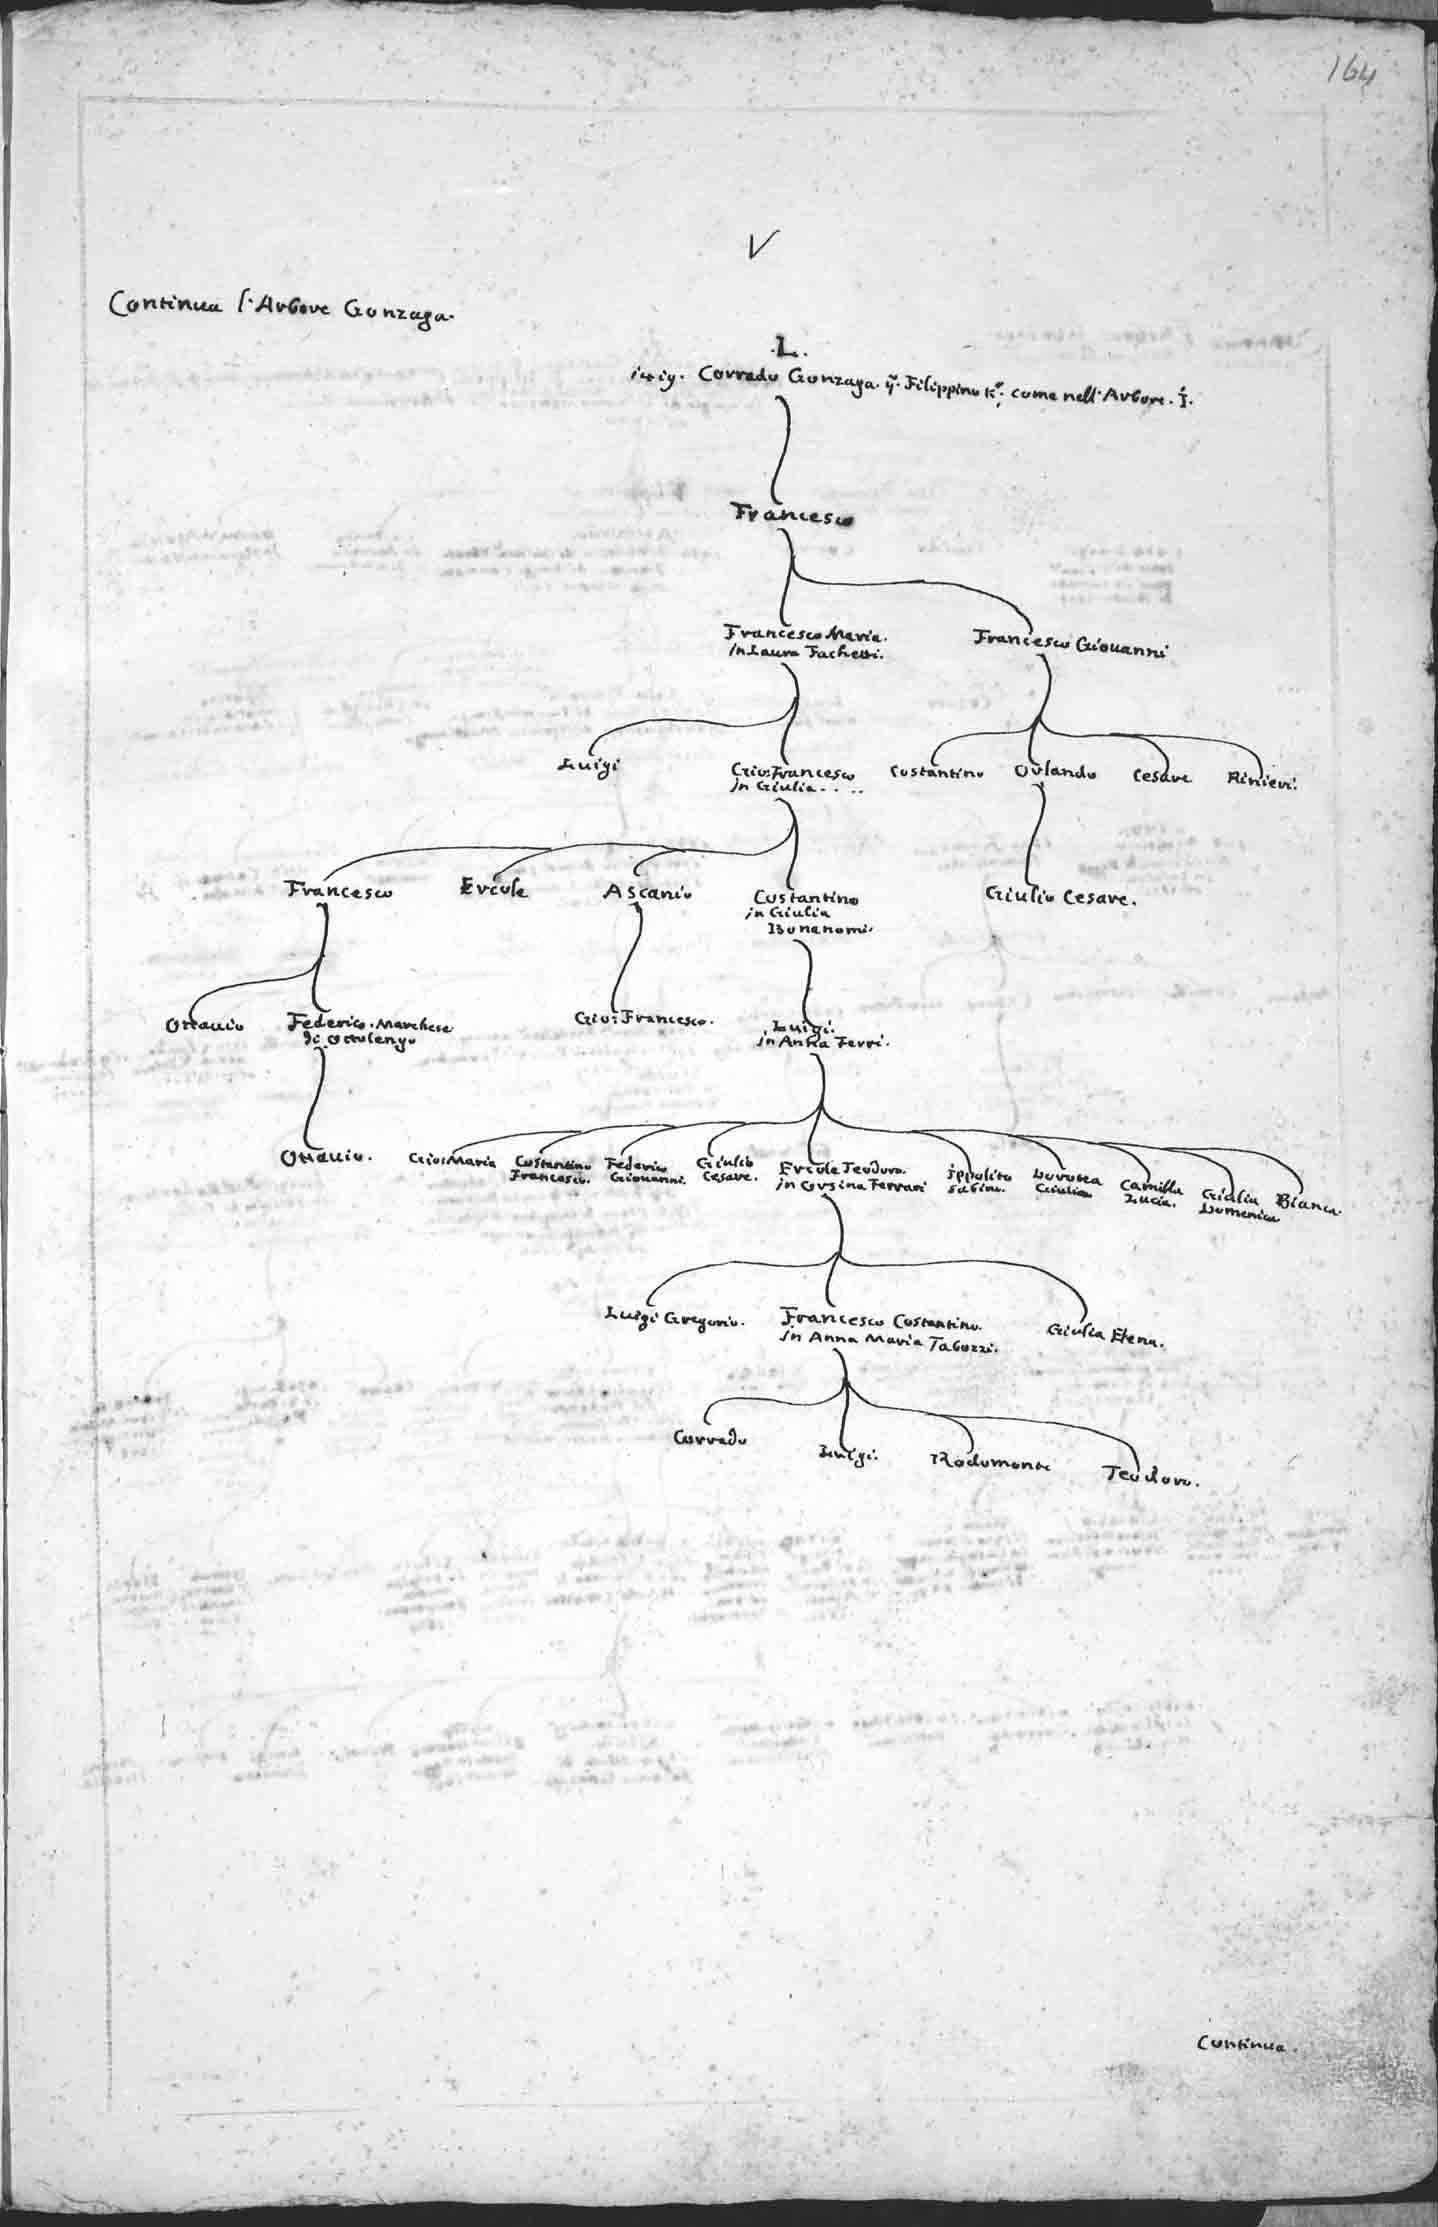 164
V
Continua l'Arbore Gonzaga.
.L.
Corrado Gonzaga. q. Filippino K. come nell'Arbore. I.
Francesco
Francesco Maria. Francesco Giouanni
in Laura Fachetti.
Luigi Gio: Francesco Costantino Orlando Cesare Rinieri.
in Giulia. . . .
Francesco Ercole Ascanio Costantino Giulio Cesare.
in Giulia
Bonanomi.
Ottauio Federico. Marchese Gio: Francesco. Luigi.
di Ottolengo in Anna Ferri.
Ottauio. Gio: Maria Costantino Federico Giulio Ercole Teodoro. Ippolito Dorotea Camilla Giulia Bianca.
Francesco. Giouanni. Cesare. in Corsina Ferrari Sabino. Giulia Lucia. Domenica
Luigi Gregorio. Francesco Costantino. Giulia Elena.
in Anna Maria Tabozzi.
Corrado Luigi. Rodomonte Teodoro.
Continua.